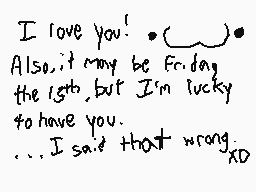 I love you!
Also, it may be Friday
the 13th, but I'm lucky
to have you.
...I said that wrong. XD